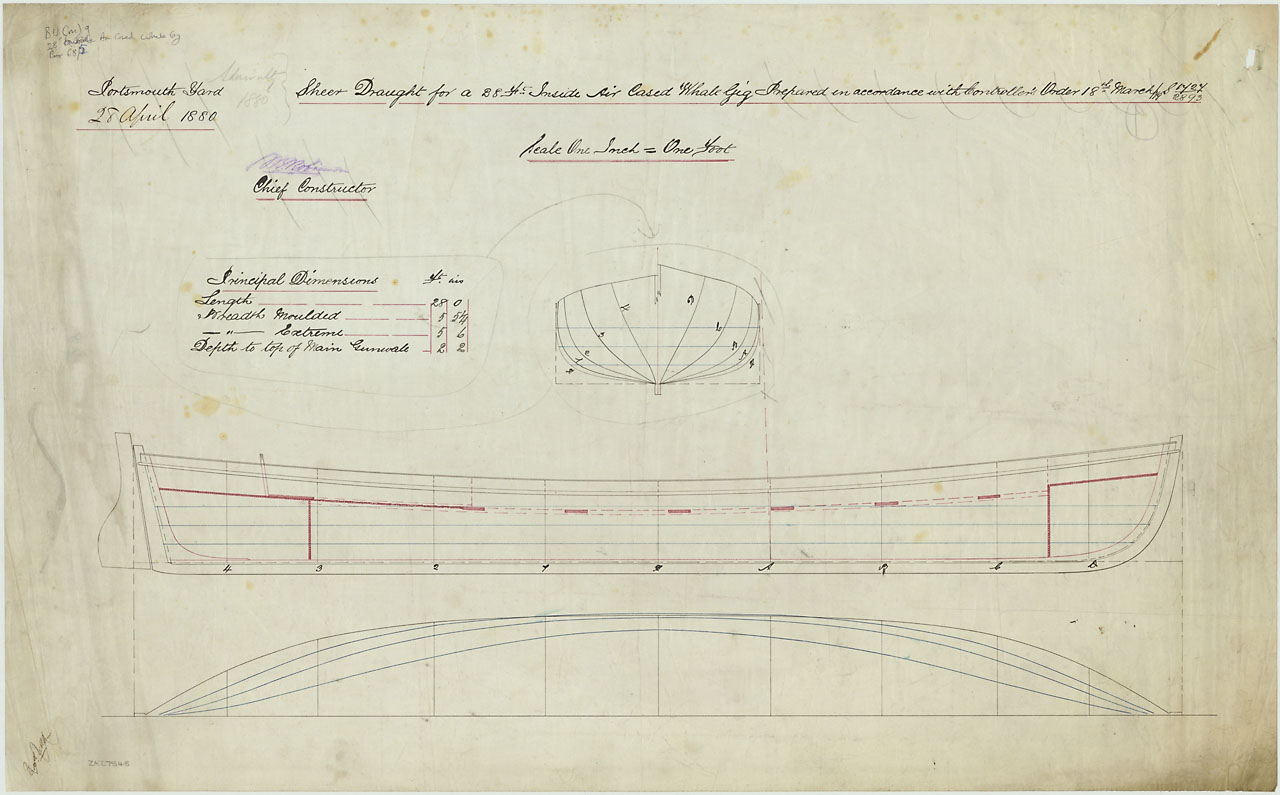 Portsmouth Yard
28 April 1880
Sheer Draught for a 28 Ft. Inside Air Cased Whale Gig Prepared in accordance with Controller's Order 18th March/79 S 1727/2893
Scale One Inch = One Foot
Chief Constructor
1880
Principal Dimensions Ft. ins
Length 28 0
Breadth Moulded 5 5¼
" Extreme 5 6
Depth to top of Main Gunwale 2 2
4 3 2 1